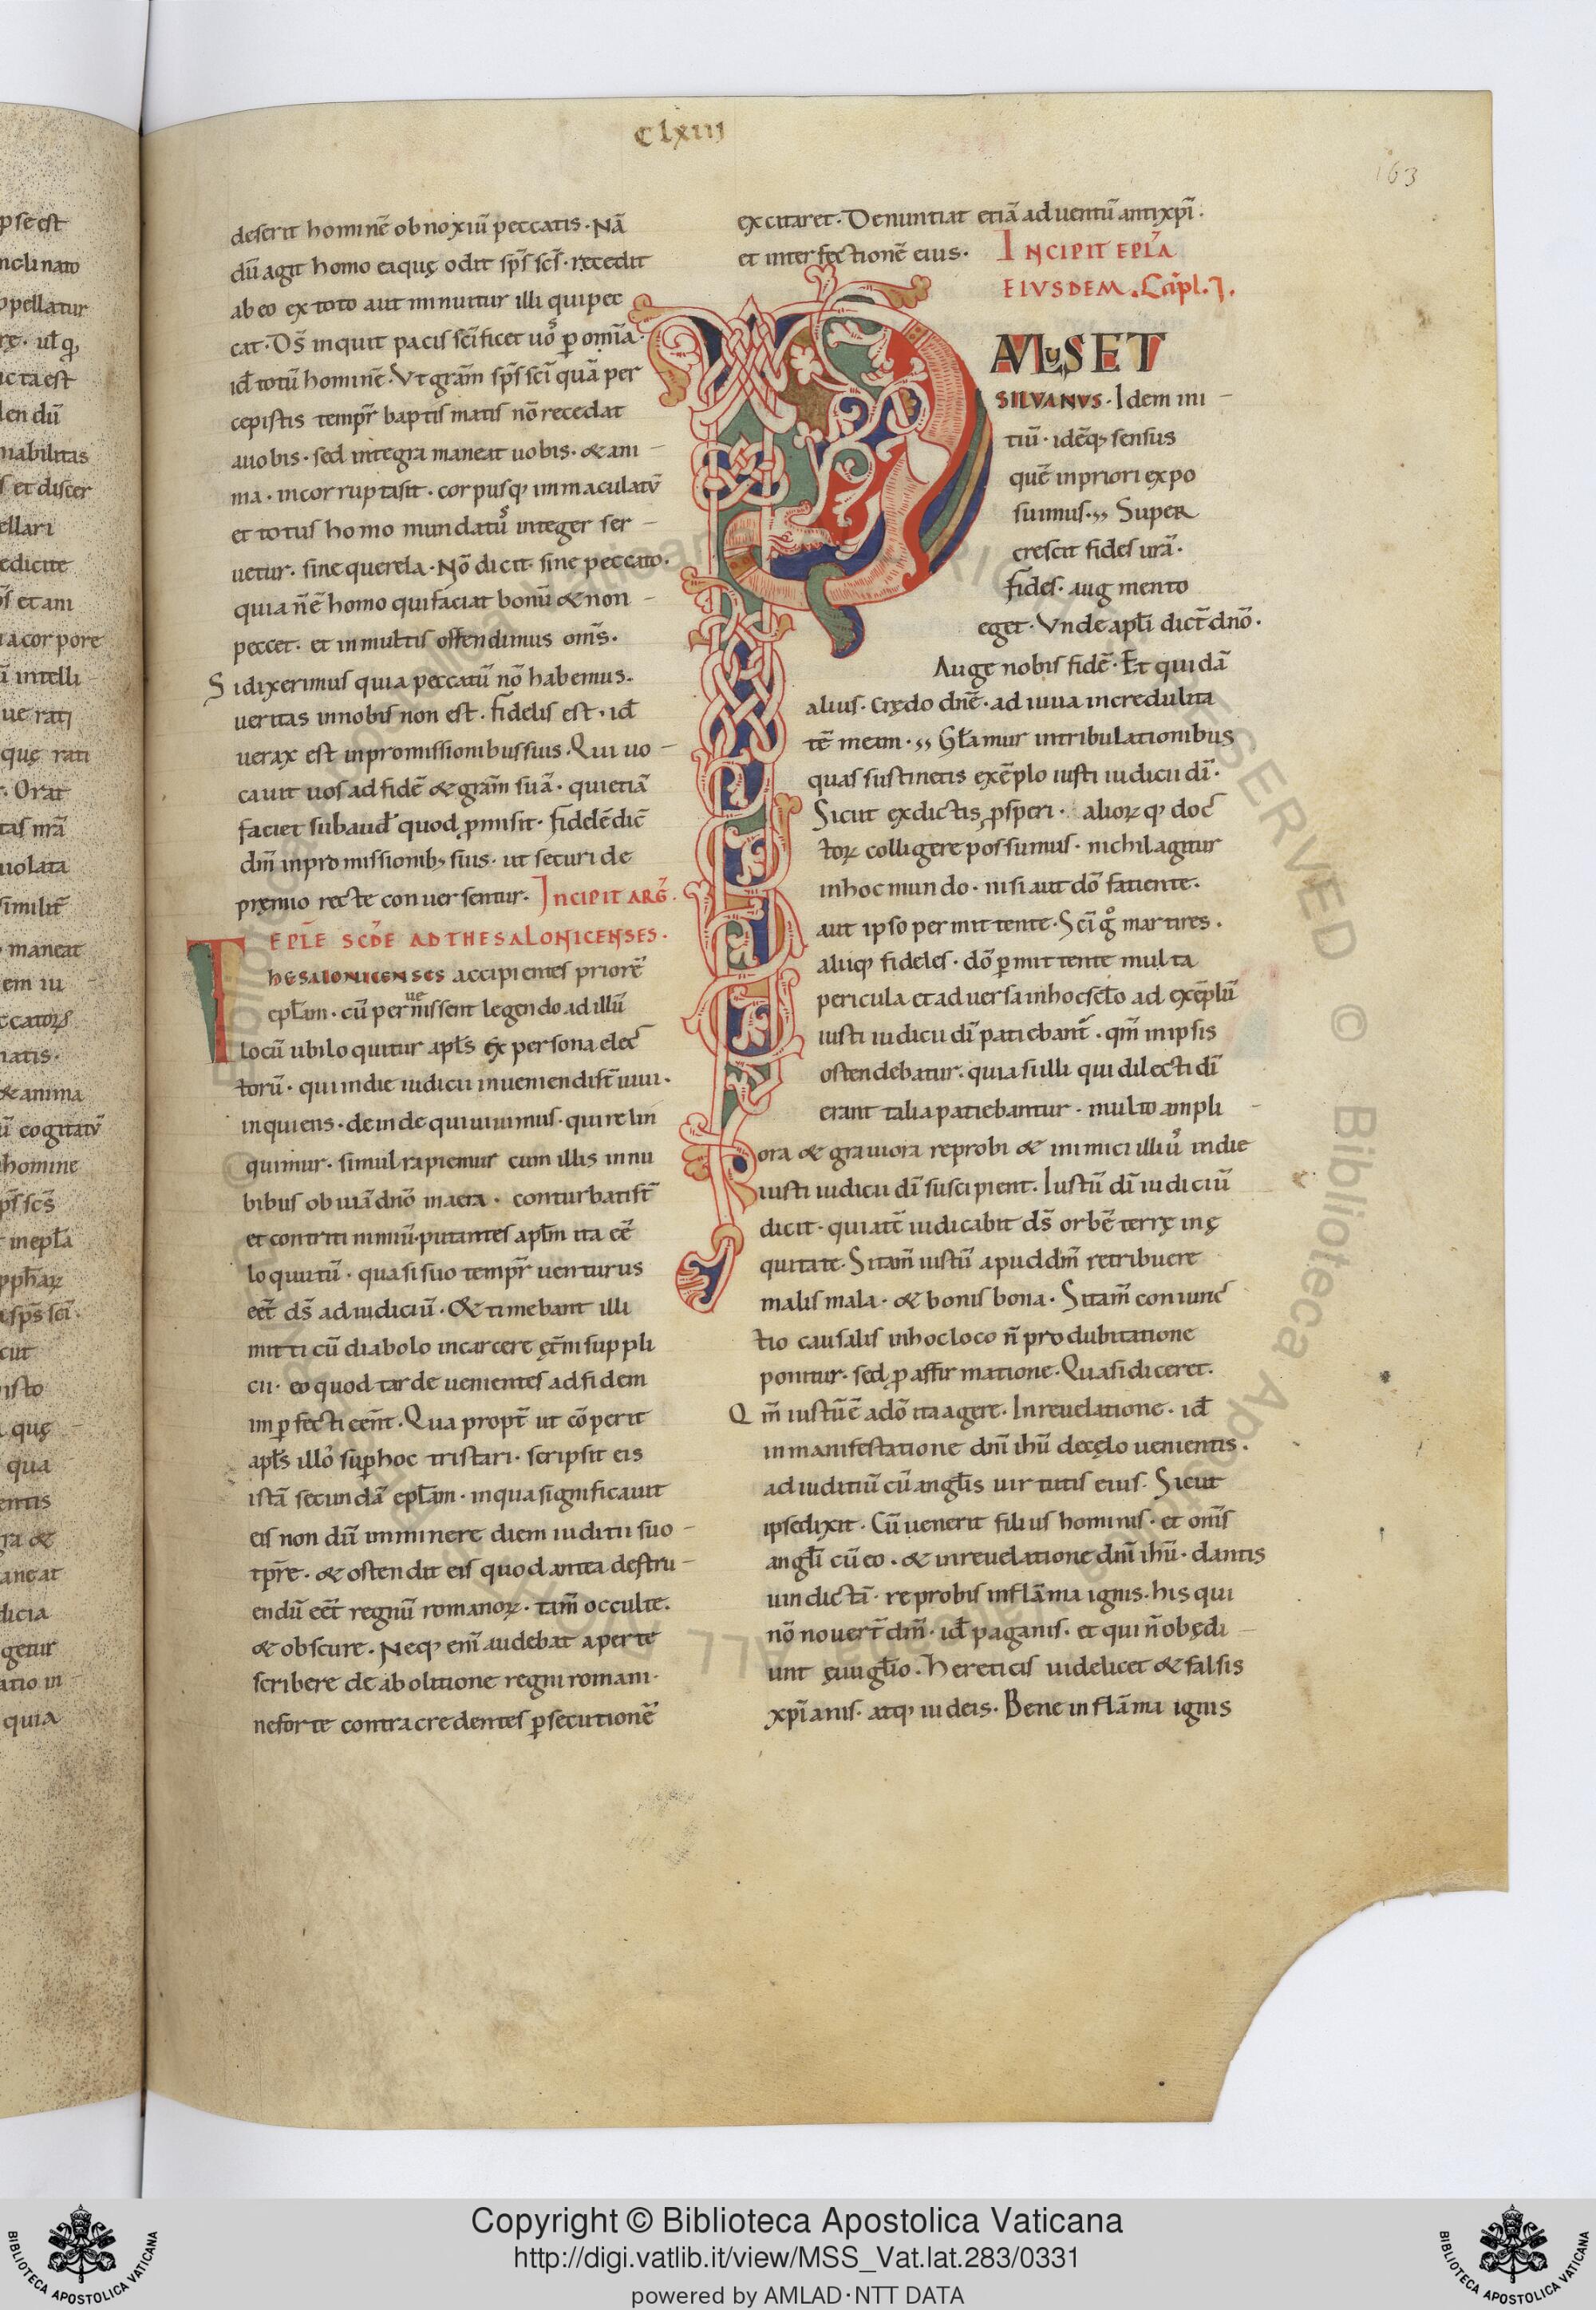 Clxiij
163
deserit hominē obnoxiū peccatis. Nā
dū agit homo eaquę odit sp̄s sc̄s. recedit
ab eo ex toto aut minuitur illi qui pec
cat. Ds̄ inquit pacis sc̄ificet uos ꝑ om̄ia.
id̄ totū hominē. Vt gr̄am sp̄s sc̄i quā per
cepistis tempr̄ baptismatis nō recedat
a uobis. sed integra maneat uobis. & ani
ma. incorrupta sit. corpusq; immaculatū
et totus homo mundatus integer ser
uetur. sine querela. Nō dicit sine peccato.
quia n̄ ē homo qui faciat bonū & non
peccet. et in multis offendimus om̄s.
Si dixerimus quia peccatū nō habemus.
ueritas in nobis non est. fidelis est. id̄
uerax est in promissionibus suis. Qui uo
cauit uos ad fidē & gr̄am suā. qui etiā
faciet subaud̄ quod ꝓmisit. fidelē dic̄
dm̄ in promissionib; suis. ut securi de
premio recte conuersentur. Incipit arḡ
EPLE SCD̄E AD THESALONICENSES.
THESALONICENSES accipientes priorē
epl̄am. cū peruenissent legendo ad illū
locū ubi loquitur apl̄s ex persona elec
torū. qui in die iudicii inueniendi st̄ uiui.
inquiens. deinde qui uiuimus. qui relin
quimur. simul rapiemur cum illis in nu
bibus obuiā dnō in aera. conturbati st̄
et contriti nimiū. putantes apl̄m ita eē
loquutū. quasi suo tempr̄ uenturus
eēt ds̄ ad iudiciū. & timebant illi
mitti cū diabolo in carcere ęt̄ni suppli
cii. eo quod tarde uenientes ad fidem
imꝑfecti eēnt. Quapropt̄ ut cōperit
apl̄s illos sup hoc tristari. scripsit eis
istā secundā epl̄am. in qua significauit
eis non dū imminere diem iuditii suo
tp̄re. & ostendit eis quod antea destru
endū eēt regnū romanoꝝ. tam̄ occulte.
& obscure. Neq; eni᷈ audebat aperte
scribere de abolitione regni romani.
ne forte contra credentes ꝑsecutionē
excitaret. Denuntiat etiā aduentū antixp̄i.
et interfectionē eius. INCIPIT EPL̄A
EIVSDEM. Capl. I.
PAVLUS ET
SILVANVS. Idem ini
tiū. idēq; sensus
quē in priori expo
suimus. Super
crescit fides ur̄a.
fides. augmento
eget. Vnde apl̄i dict̄ dnō.
Auge nobis fidē. Et quidā
alius. Credo dnē. adiuua incredulita
tē meam. Gl̄amur in tribulationibus
quas sustinetis exēplo iusti iudicii dī.
Sicut ex dictis ꝓsperi. alioꝝq; doc
toꝝ colligere possumus. nichil agitur
in hoc mundo. nisi aut dō faciente.
aut ipso permittente. Sc̄i g̊ martires.
aliiq; fideles. dō ꝑmittente multa
pericula et aduersa in hoc scl̄o ad exēplū
iusti iudicii dī patiebant᷈. qm̄ in ipsis
ostendebatur. quia si illi qui dilecti dī
erant talia patiebantur. multo ampli
ora & grauiora reprobi & inimici illius in die
iusti iudicii dī suscipient. Iustū dī iudiciū
dicit. quia tc̄ iudicabit ds̄ orbē terrę in ę
quitate. Si tam̄ iustū apud dm̄ retribuere
malis mala. & bonis bona. Si tam̄ coniunc
tio causalis in hoc loco n̄ pro dubitatione
ponitur. sed ꝑ affirmatione. Quasi diceret.
Qm̄ iustū ē a dō ita agere. In reuelatione. id̄
in manifestatione dnī ihū de cęlo uenientis.
ad iuditiū cū angl̄is uirtutis eius. Sicut
ipse dixit. Cū uenerit filius hominis. et om̄s
angl̄i cū eo. & in reuelatione dnī ihū. dantis
uindictā. reprobis in flāma ignis. his qui
nō nouert̄ dm̄. id̄ paganis. et qui n̄ obędi
unt ęuugl̄io. hereticis uidelicet & falsis
xp̄ianis. atq; iudeis. Bene in flāma ignis
Copyright © Biblioteca Apostolica Vaticana
http://digi.vatlib.it/view/MSS_Vat.lat.283/0331
powered by AMLAD·NTT DATA
BIBLIOTECA APOSTOLICA VATICANA
BIBLIOTECA APOSTOLICA VATICANA